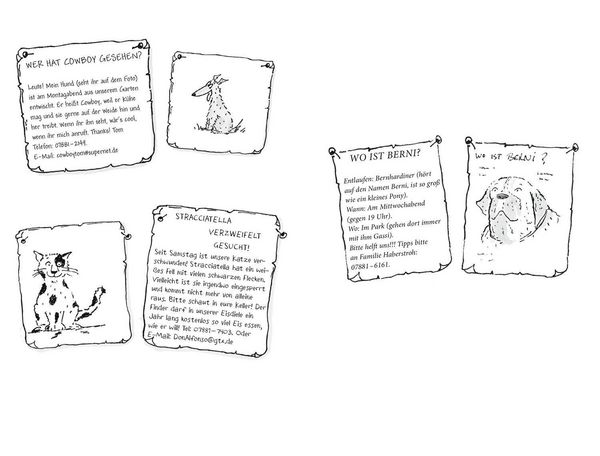 WER HAT COWBOY GESEHEN?
Leute! Mein Hund (seht ihr auf dem Foto)
ist am Montagabend aus unserem Garten
entwischt. Er heißt Cowboy, weil er Kühe
mag und sie gerne auf der Weide hin und
her treibt. Wenn ihr ihn seht, wär's cool,
wenn ihr mich anruft. Thanks! Tom
Telefon: 07881-2149.
E-Mail: cowboytom@supernet.de
STRACCIATELLA
VERZWEIFELT
GESUCHT!
Seit Samstag ist unsere Katze ver-
schwunden! Stracciatella hat ein wei-
ßes Fell mit vielen schwarzen Flecken.
Vielleicht ist sie irgendwo eingesperrt
und kommt nicht mehr von alleine
raus. Bitte schaut in eure Keller! Der
Finder darf in unserer Eisdiele ein
Jahr lang kostenlos so viel Eis essen,
wie er will! Tel: 07881-7403. Oder
E-Mail: DonAlfonso@gtx.de
WO IST BERNI?
Entlaufen: Bernhardiner (hört
auf den Namen Berni, ist so groß
wie ein kleines Pony).
Wann: Am Mittwochabend
(gegen 19 Uhr).
Wo: Im Park (gehen dort immer
mit ihm Gassi).
Bitte helft uns!!! Tipps bitte
an Familie Haberstroh:
07881-6161.
WO IST BERNI?